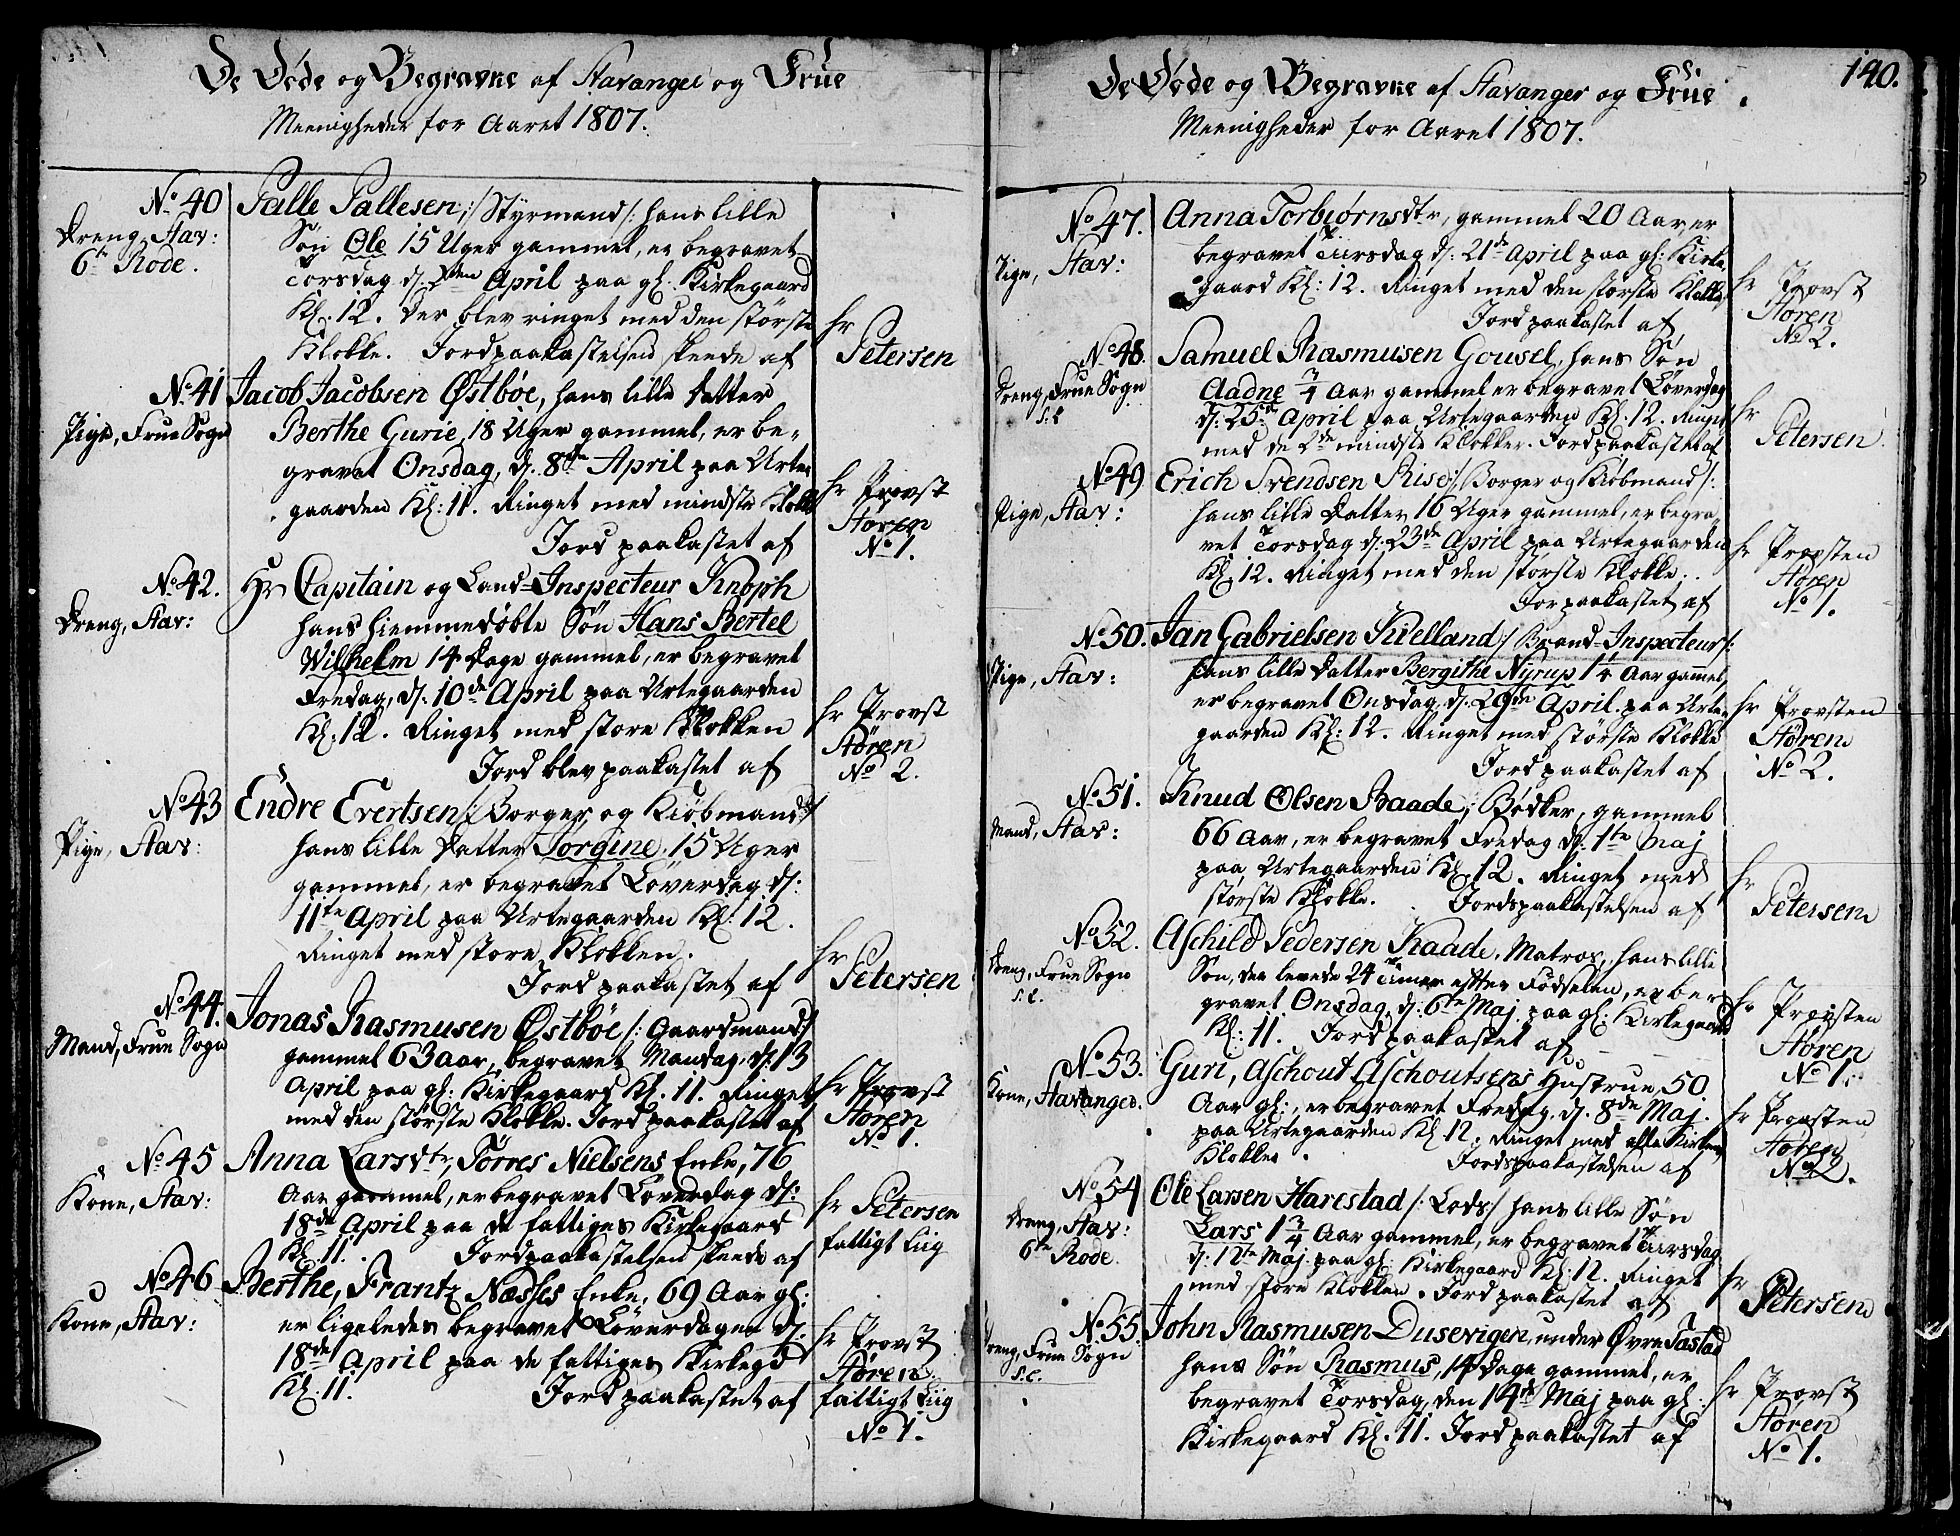 De Døde og Begravne af Stavanger og Frue
Meenigheder for Aaret 1807.
No 40
Dreng, Stav:
6te Rode.
Palle Pallesen /: Styrmand :/ hans lille
Søn Ole 15 Uger gammel, er begravet
Torsdag d. 2den April paa gl. Kirkegaard
Kl. 12. Der blev ringet med den störste
Klokke. Jordpaakastelsen skeede af
hr
Petersen
No 41
Pige, Frue Sogn
Jacob Jacobsen Østbøe, hans lille Datter
Berthe Gurie, 18 Uger gammel, er be-
gravet Onsdag, d. 8de April paa Urte-
gaarden Kl: 11. Ringet med mindste Klokke
Jord paakastet af
hr Provst
Støren
No 1.
No 42.
Dreng, Stav:
Hr Capitain og Land-Inspecteur Knoph
hans hiemmedøbte Søn Hans Bertel
Wilhelm 14 Dage gammel, er begravet
Fredag, d. 10de April paa Urtegaarden
Kl. 12. Ringet med store Klokken
Jord blev paakastet af
hr Provst
Støren
No 2.
No 43
Pige, Stav:
Endre Evertsen /: Borger og Kiøbmand :/
hans lille Datter Jorgine, 15 Uger
gammel, er begravet Løverdag d:
11te April paa Urtegaarden Kl: 12.
Ringet med store Klokken.
Jord paakastet af
hr
Petersen
No 44.
Mand, Frue Sogn
Jonas Rasmusen Østbøe /: Gaardmand :/
gammel 63 aar, begravet Mandag d. 13
April paa gl: Kirkegaard Kl. 11. Ringet
med den störste Klokke. Jord paakastet af
hr Provst
Støren
No 1.
No 45
Kone, Stav:
Anna Larsdtr, Törres Nielsens Enke, 76
Aar gammel, er begravet Løverdag d:
18de April paa de fattiges Kirkegaard
Kl. 11. Jordpaakastelsen skeede af
hr Petersen
fattigt Liig
No 46
Kone, Stav:
Berthe, Frantz Næsses Enke, 69 Aar gl:
er ligeledes begravet Løverdagen d.
18de April paa de fattiges Kirkegd
Kl: 11. Jord paakastet af
hr Provst
Støren
fattigt Liig
No 1.
De Døde og Begravne af Stavanger og Frue.
140.
Meenigheder for Aaret 1807.
No 47.
Pige, Stav:
Anna Torbiørnsdtr, gammel 20 Aar, er
begravet Tiirsdag d: 21de April paa gl: Kirke-
gaard Kl: 12. Ringet med den störste Klokke,
Jord paakastet af
hr Provst
Støren
No 2.
No 48.
Dreng, Frue Sogn
Samuel Rasmusen Gousel, hans Søn
Aadne 3/4 Aar gammel er begravet Løverdag
d: 25de April paa Urtegaarden Kl: 12. Ringet
med de 2de mindste Klokker. Jord paakastet af
hr
Petersen
No 49
Pige, Stav:
Erich Svendsen Rise /: Borger og Kiöbmand /:
hans lille Datter 16 Uger gammel, er begra-
vet Torsdag d: 23de April paa Urtegaarden
Kl. 12. Ringet med den störste Klokke.
Jor paakastet af
hr Provsten
Støren
No 1.
No 50.
Pige, Stav:
Jan Gabrielsen Kielland /: Brand-Inspecteur /:
hans lille Datter Bergithe Nyrup 1 1/4 Aar gammel,
er begravet Onsdag d. 29de April paa Urte-
gaarden Kl: 12. Ringet med störste Klokke
Jord paakastet af
hr Provsten
Støren
No 2.
No 51.
Mand, Stav:
Knud Olsen Raade, Bödker, gammel
66 Aar, er begravet Fredag d. 1te Maj
paa Urtegaarden Kl. 12. Ringet med
störste Klokke. Jordspaakastelsen af
hr
Petersen
No 52.
Dreng, Frue Sogn
Aschild Pedersen Kaade, Matros, hans lille
Søn, der levede 24 Timer efter Födselen, er be-
gravet Onsdag, d: 6te Maj paa gl: Kirkegaard
Kl: 11. Jord paakastet af
hr Provsten
Støren
No 1.
No 53.
Kone, Stavanger.
Guri, Aschout Aschoutsens Hustrue, 50
Aar gl:, er begravet Fredag, d. 8de Maj
paa Urtegaarden Kl 12. Ringet med alle Kirkens
Klokker. Jordspaakastelsen af
hr Provsten
Støren
No 2.
No 54
Dreng, Stav:
6te Rode.
Ole Larsen Harestad /: Lods :/ hans lille Søn
Lars 1 3/4 Aar gammel, er begravet Tiirsdag
d: 12te Maj paa gl: Kirkegaard Kl: 12. Ringet
med store Klokken. Jord paakastet af
hr
Petersen
No 55.
Dreng, Frue Sogn
John Rasmusen Dusevigen, under Øvre Tastad
hans Søn Rasmus, 14 Dage gammel, er
begravet Torsdag, den 14de Maj paa gl.
Kirkegaard Kl. 11. Jord paakastet af
hr Provst
Støren
No 1.